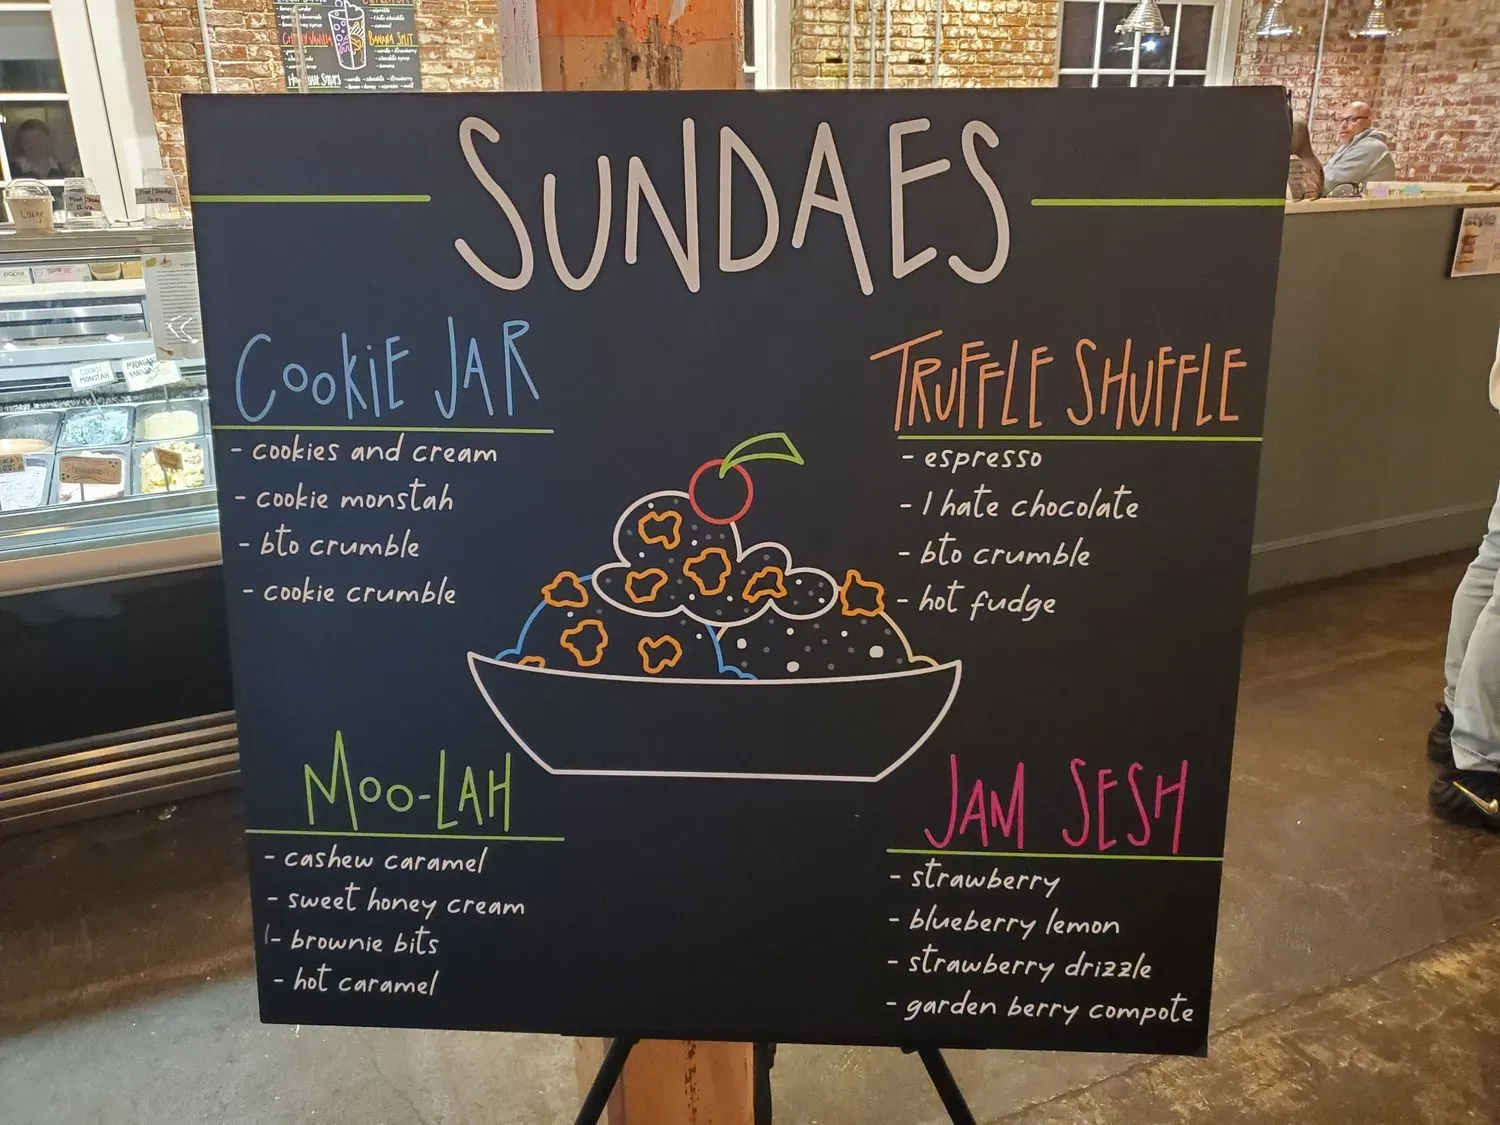 BANANA SPLIT
SUNDAES
COOKIE JAR
- cookies and cream
- cookie monstah
- bto crumble
- cookie crumble
TRUFFLE SHUFFLE
- espresso
- I hate chocolate
- bto crumble
- hot fudge
MOO-LAH
- cashew caramel
- sweet honey cream
- brownie bits
- hot caramel
JAM SESH
- strawberry
- blueberry lemon
- strawberry drizzle
- garden berry compote
Large
COOKIE
MONSTAH
style